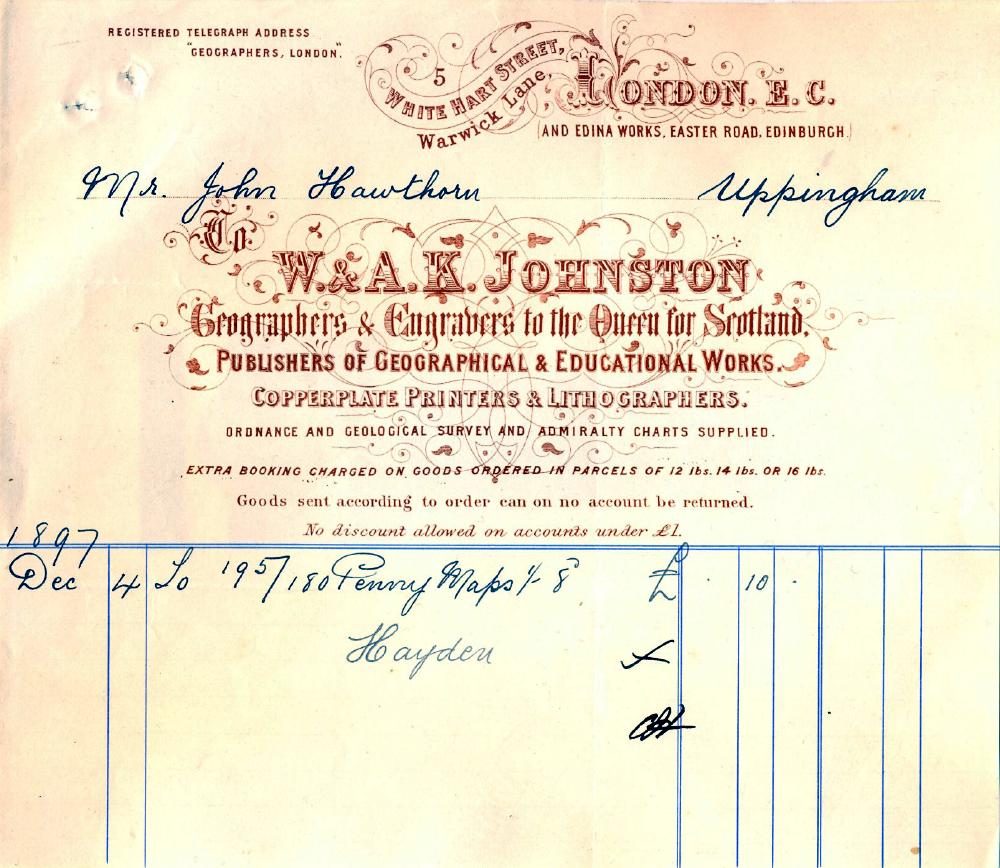 REGISTERED TELEGRAPH ADDRESS
"GEOGRAPHERS, LONDON."
5
WHITE HART STREET,
Warwick Lane,
LONDON. E. C.
(AND EDINA WORKS, EASTER ROAD, EDINBURGH.)
Mr. John Hawthorn Uppingham
To
W. & A. K. JOHNSTON
Geographers & Engravers to the Queen for Scotland.
PUBLISHERS OF GEOGRAPHICAL & EDUCATIONAL WORKS.
COPPERPLATE PRINTERS & LITHOGRAPHERS.
ORDNANCE AND GEOLOGICAL SURVEY AND ADMIRALTY CHARTS SUPPLIED.
EXTRA BOOKING CHARGED ON GOODS ORDERED IN PARCELS OF 12 lbs. 14 lbs. OR 16 lbs.
Goods sent according to order can on no account be returned.
No discount allowed on accounts under £1.
1897
Dec 4 To 195/180 Penny Maps /- 8 £ . 10 .
Hayden